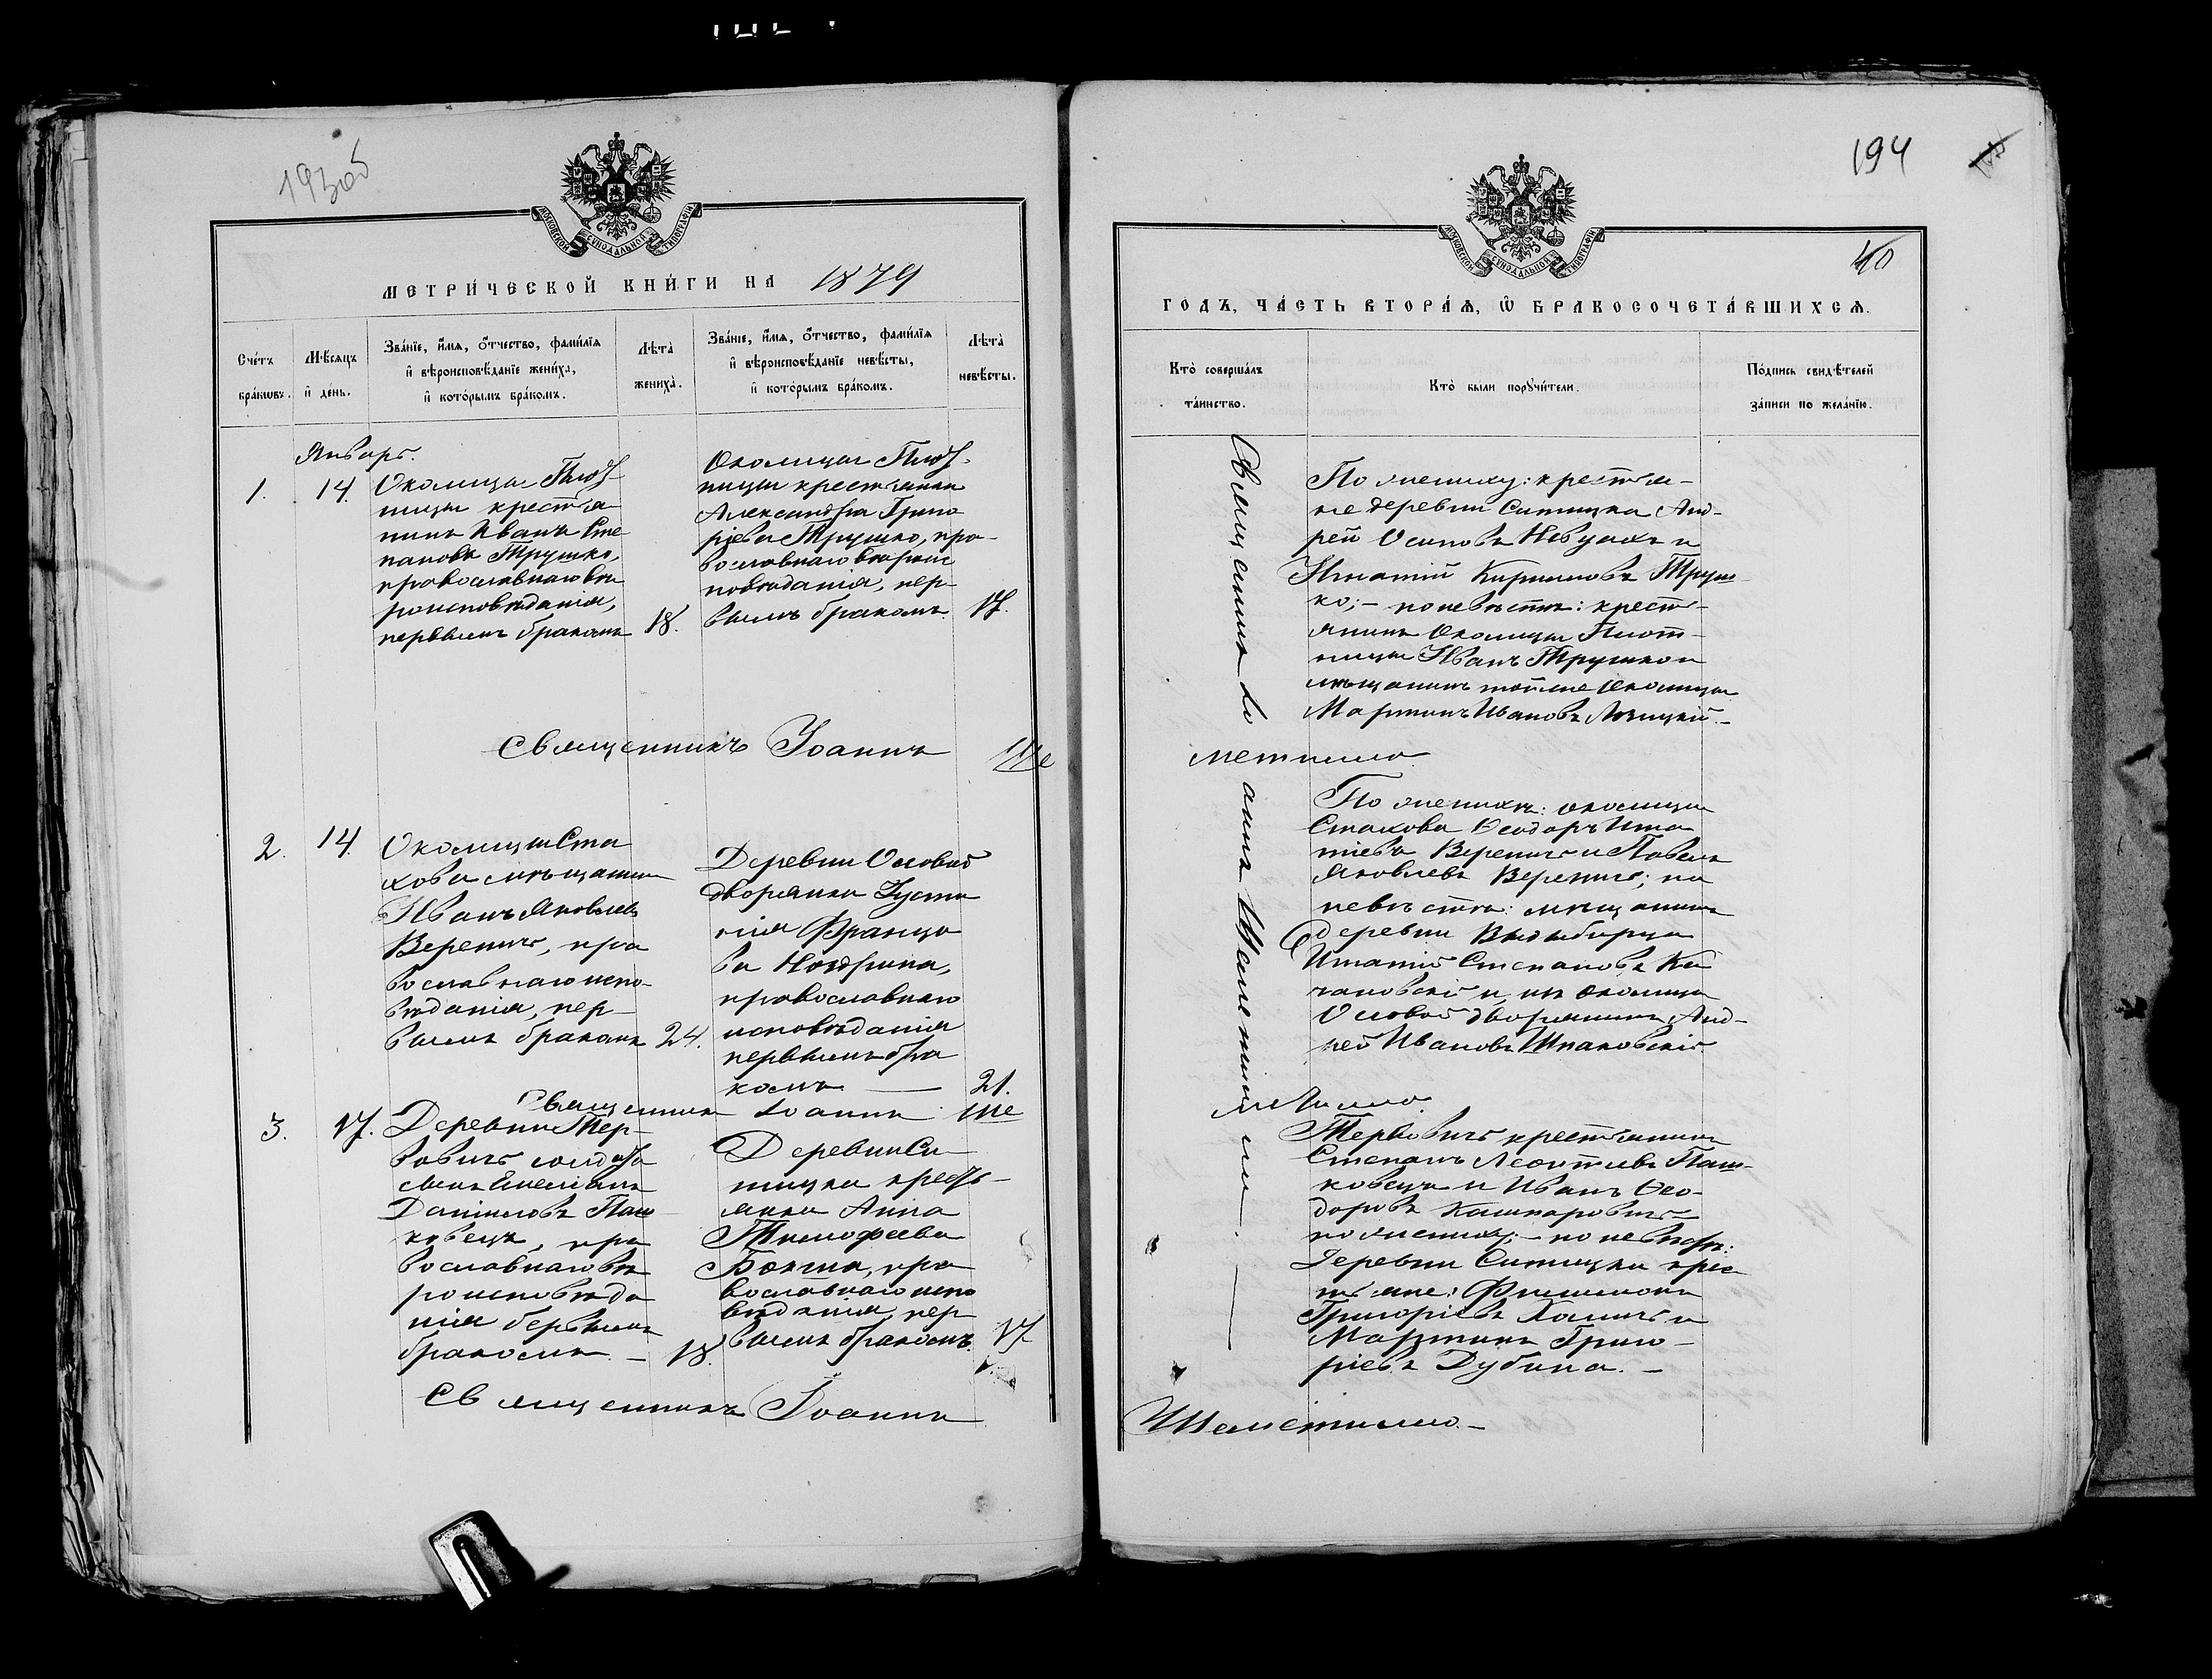 193об
МОСКОВСКОЙ СѴНОДАЛЬНОЙ ТИПОГРАФІИ
МЕТРИ́ЧЕСКОЙ КНИ́ГИ НА 1879
Сче́тъ бра́ковъ.
Мѣ́сяцъ и҆ де́нь.
Зва́нїе, и҆́мѧ, ѻ҆́тчество, фами́лїѧ
и҆ вѣроисповѣ́данїе жениха̀,
и҆ кото́рымъ бра́комъ.
Лѣта̀
жениха̀.
Зва́нїе, и҆́мѧ, ѻ҆́тчество, фами́лїѧ
и҆ вѣроисповѣ́данїе невѣ́сты,
и҆ кото́рымъ бра́комъ.
Лѣта̀
невѣ́сты.
Январь.
1.
14.
Околицы Плот-
ницы крестья-
нинъ Иванъ Сте
пановъ Трушко,
православнаго вѣ
роисповѣданія,
первымъ бракомъ
18.
Околицы Плот-
ницы крестьянка
Александра Григо
рьева Трушко, пра-
вославнаго вѣроис
повѣданія, пер-
вымъ бракомъ.
17.
Священникъ Іоаннъ Ше
2.
14.
Околицы Ста
хова мѣщанинъ
Иванъ Яковлевъ
Веренич, пра
вославнаго испо-
вѣданія, пер-
вымъ бракомъ
24.
Деревни Осовой
дворянка Іусти
нія Францо
ва
православнаго
исповѣданія
первымъ бра
комъ —
21.
Священникъ Іоаннъ Ше
3.
17.
Деревни Тер-
бовичъ солдат
Емеліанъ
Даніиловъ Паш
ковецъ, пра
вославнаго вѣ
роисповѣда
нія первымъ
бракомъ. —
18.
Деревни Си-
тицка кресть-
янка Анна
Тимофеева
пра
вославнаго испо
вѣданія, пер
вымъ бракомъ.
17
Священникъ Іоаннъ
194
МОСКОВСКОЙ СѴНОДАЛЬНОЙ ТИПОГРАФІИ
40
ГОДЪ, ЧА́СТЬ ВТОРА́Ѧ, Ѽ БРАКОСОЧЕТА́ВШИХСѦ.
Кто̀ соверша́лъ
та́инство.
Кто̀ были порꙋчи́тели.
По́дпись свидѣ́телей
за́писи по жела́нїю.
Священникъ Іоаннъ Шеметилло. —
По жениху: крестья-
не деревни Ситицка Анд-
рей Осиповъ и
Игнатій Кирилловъ Труш-
ко; — по невѣстѣ: кресть-
янинъ Околицы Плот-
ницы Иванъ Трушко и
мѣщанинъ тойже Околицы
Мартинъ Ивановъ
метилло.
По женихѣ: околицы
Стахова Ѳеодоръ Игна
тіевъ Веренич и Павелъ
Яковлевъ Веренич; по
невѣстѣ: мѣщанинъ
деревни
Игнатій Степановъ Ка
чановскій и изъ околицы
Осовой дворянинъ Анд-
рей Ивановъ Шпаковскій.
метилло.
Тербовичъ крестьянинъ
Степанъ Леонтіевъ Паш-
ковецъ и Иванъ Ѳео-
доровъ Кашпаровичъ
по жениху; — по невѣстѣ:
Деревни Ситицка крес
тьяне: Филимонъ
Григорьевъ Хомичъ и
Мартинъ Григо-
рьевъ Дубина. —
Шеметилло. —